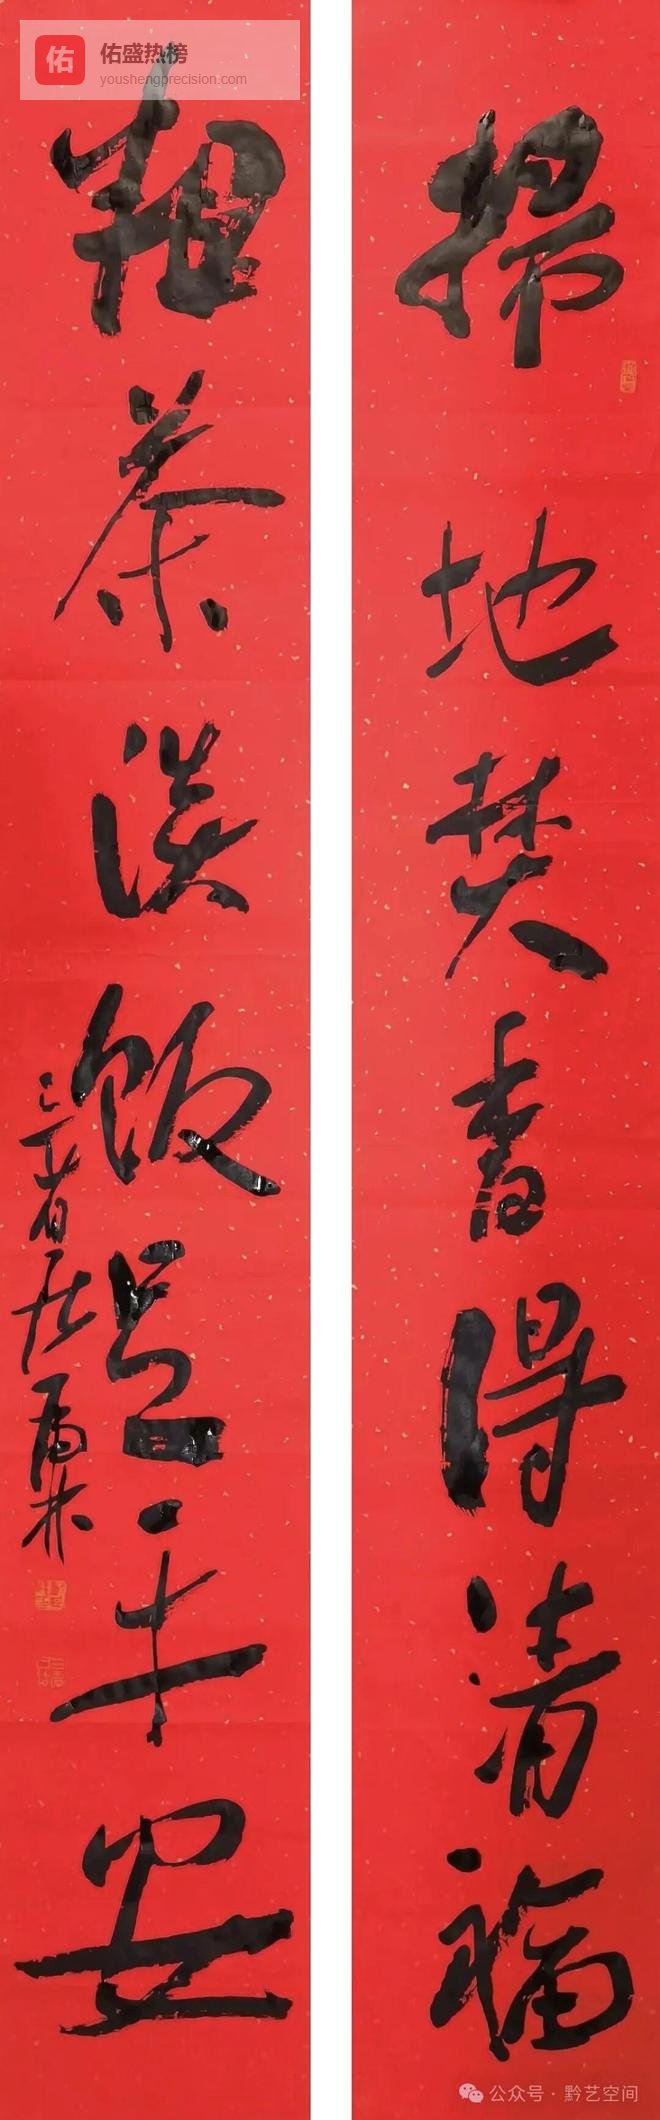 佑盛热榜
youshengprecision.com
掃地焚香得清福
粗茶淡飯平安
三省居
公众号 · 黔艺空间